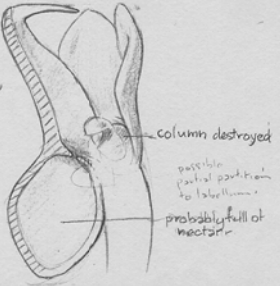 column destroyed
possible
partial partition
to labellum.
probably full of
nectar.